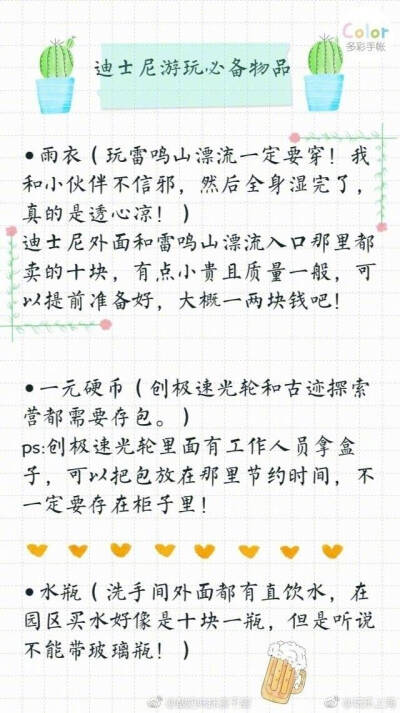 Color
多彩手帐
迪士尼游玩必备物品
•雨衣（玩雷鸣山漂流一定要穿！我
和小伙伴不信邪，然后全身湿完了，
真的是透心凉！）
迪士尼外面和雷鸣山漂流入口那里都
卖的十块，有点小贵且质量一般，可
以提前准备好，大概一两块钱吧！
•一元硬币（创极速光轮和古迹探索
营都需要存包。）
ps:创极速光轮里面有工作人员拿盒
子，可以把包放在那里节约时间，不
一定要存在柜子里！
•水瓶（洗手间外面都有直饮水，在
园区买水好像是十块一瓶，但是听说
不能带玻璃瓶！）